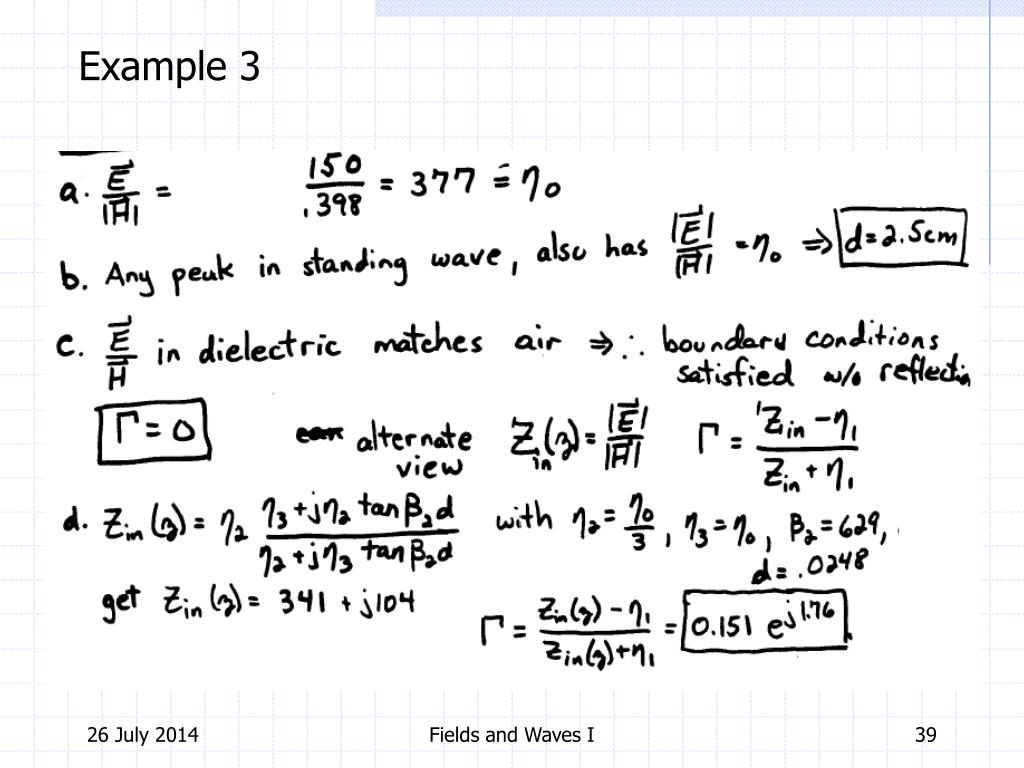 Example 3
a. E⃗/|H⃗| = 150/.398 = 377 = η₀
b. Any peak in standing wave, also has |E⃗|/|H⃗| = η₀ ⇒ d = 2.5cm
c. E⃗/H in dielectric matches air ⇒ ∴ boundary conditions
satisfied w/o reflectin
Γ = 0 alternate Zin(z) = |E⃗|/|H⃗| Γ = (Zin − η₁)/(Zin + η₁)
view
d. Zin(z) = η₂ (η₃ + jη₂ tan β₂d)/(η₂ + jη₃ tan β₂d) with η₂ = η₀/3, η₃ = η₀, β₂ = 629,
d = .0248
get Zin(z) = 341 + j104
Γ = (Zin(z) − η₁)/(Zin(z) + η₁) = 0.151 e^{j1.76}
26 July 2014
Fields and Waves I
39